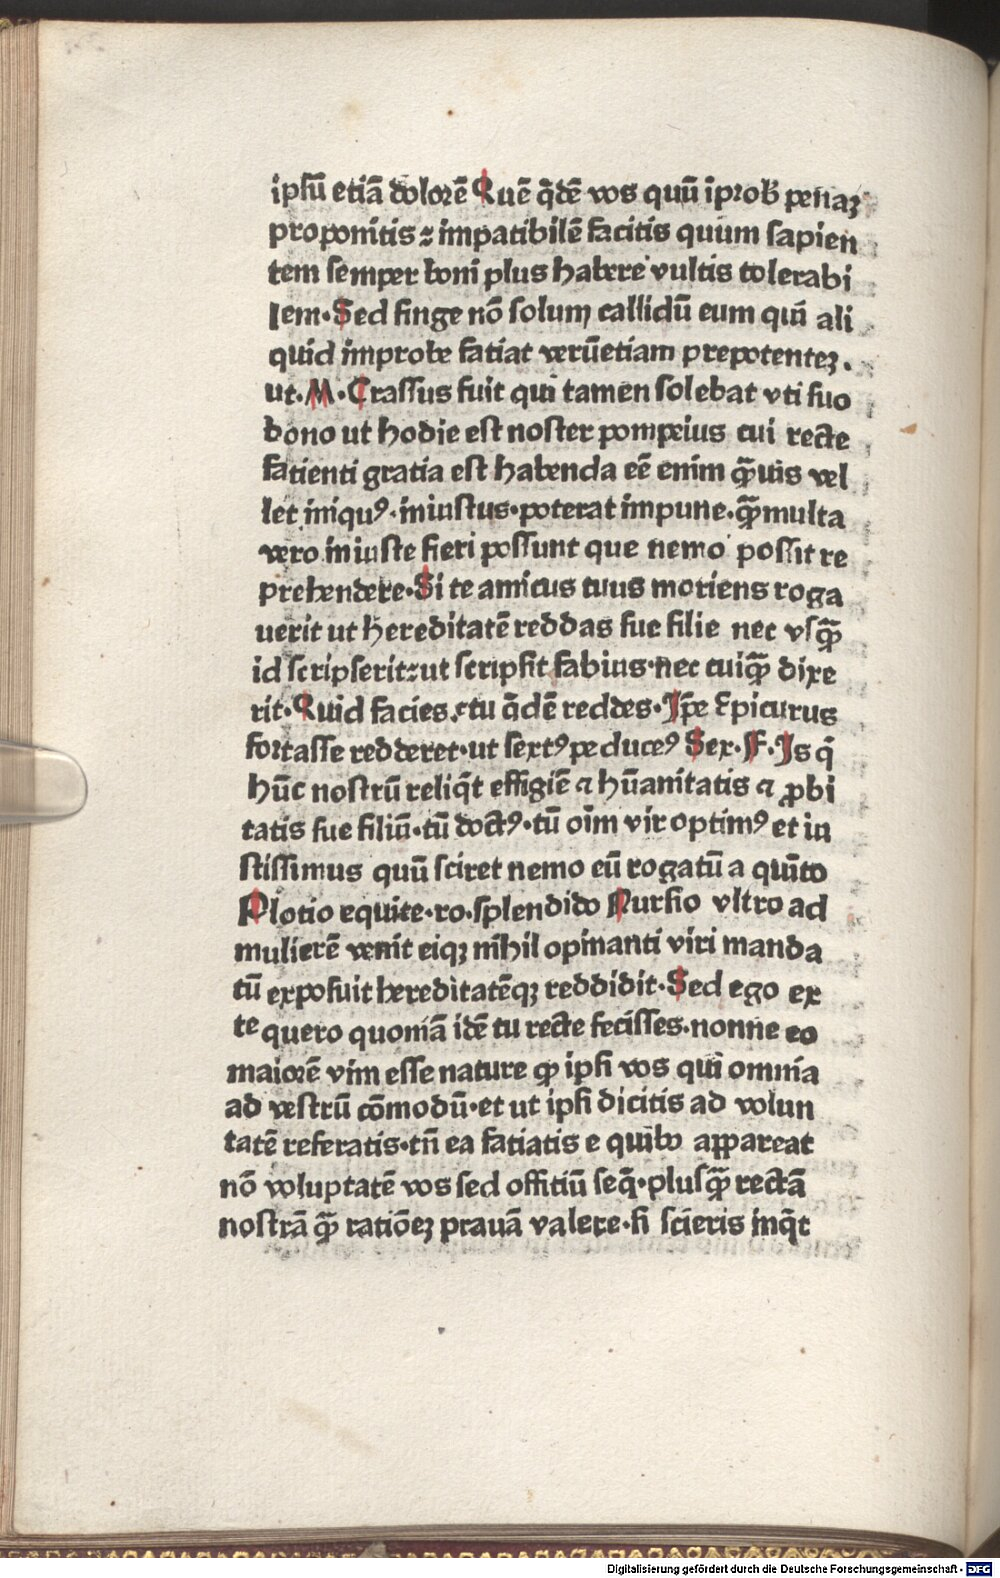 ipſū etiā dolorē Quē q̄dē vos quū īprob̄ penaꝫ
proponitis ⁊ impatibilē facitis quum ſapien
tem ſemper boni plus habere vultis tolerabi
lem·Sed finge nō ſolum callidū eum qui ali
quid improbe fatiat verūetiam prepotenteꝫ.
ut·M·Craſſus fuit qui tamen ſolebat vti ſuo
bono ut hodie eſt noſter pompeius cui recte
fatienti gratia eſt habenda eē enim qᷓuis vel
let iniquꝰ·iniuſtus·poterat impune·qᷓmulta
vero iniuſte fieri poſſunt que nemo poſſit re
prehendere·Si te amicus tuus moriens roga
uerit ut hereditatē reddas ſue filie nec vſqᷓ
id ſcripſerit⁊ut ſcripſit fabius·nec cuiqᷓ dixe
rit·Quid facies.⁊tu q̄dē reddes·Ip̄e Epicurus
fortaſſe redderet·ut ſextꝰpeduceꝰ Sex·F·Is q̄
hūc noſtrū reliq̄t effigiē ⁊ hūanitatis ⁊ ꝓbi
tatis ſue filiū·tū doctꝰ·tū oīm vir optimꝰ et iu
ſtiſſimus quū ſciret nemo eū rogatū a quīto
Plotio equite·ro.ſplendido Nurſio vltro ad
mulierē venit eiqꝫ nihil opinanti viri manda
tū expoſuit hereditatēqꝫ reddidit·Sed ego ex
te quero quoniā idē tu recte feciſſes·nonne eo
maiorē vim eſſe nature qꝫ ipſi vos qui omnia
ad veſtrū cōmodū·et ut ipſi dicitis ad volun
tatē referatis·tn̄ ea fatiatis e quibꝰ appareat
nō voluptatē vos ſed offitiū ſeq̄·pluſqᷓ rectā
noſtrā qᷓ ratiōeꝫ prauā valere·ſi ſcieris inq̄t
Digitalisierung gefördert durch die Deutsche Forschungsgemeinschaft - DFG